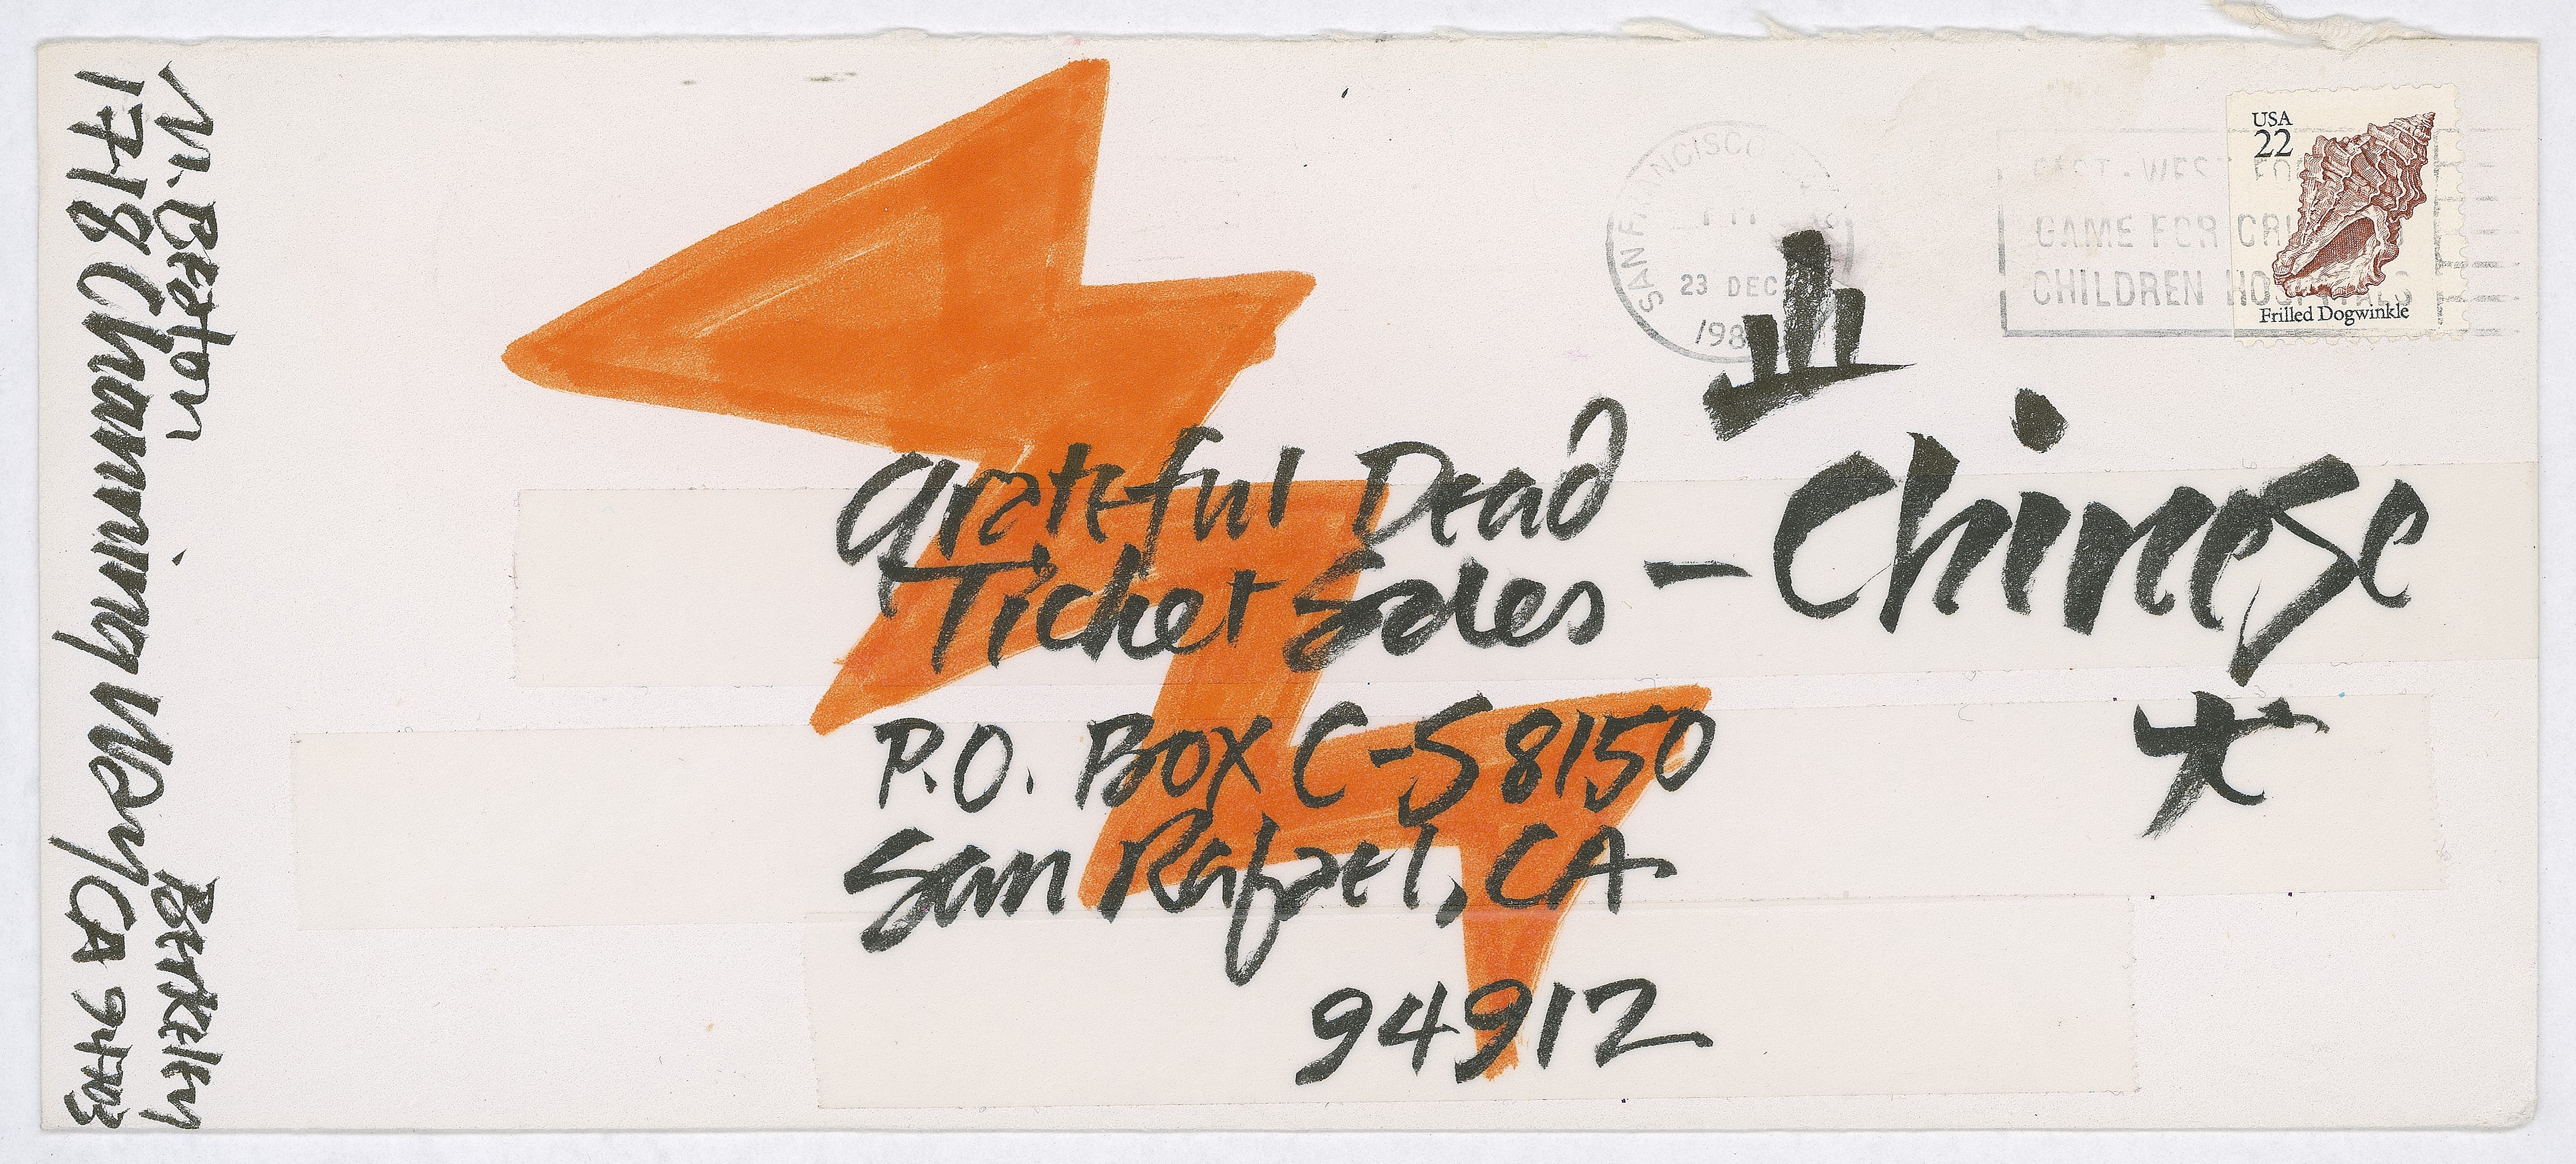 M. Beaton
1718 Channing Way
Berkeley
CA 94703
SAN FRANCISCO
23 DEC
198
EAST-WEST
GAME FOR CRI
CHILDREN HOSPITALS
USA
22
Frilled Dogwinkle
Grateful Dead
Ticket Sales – Chinese
P.O. Box C-S8150
San Rafael, CA
94912